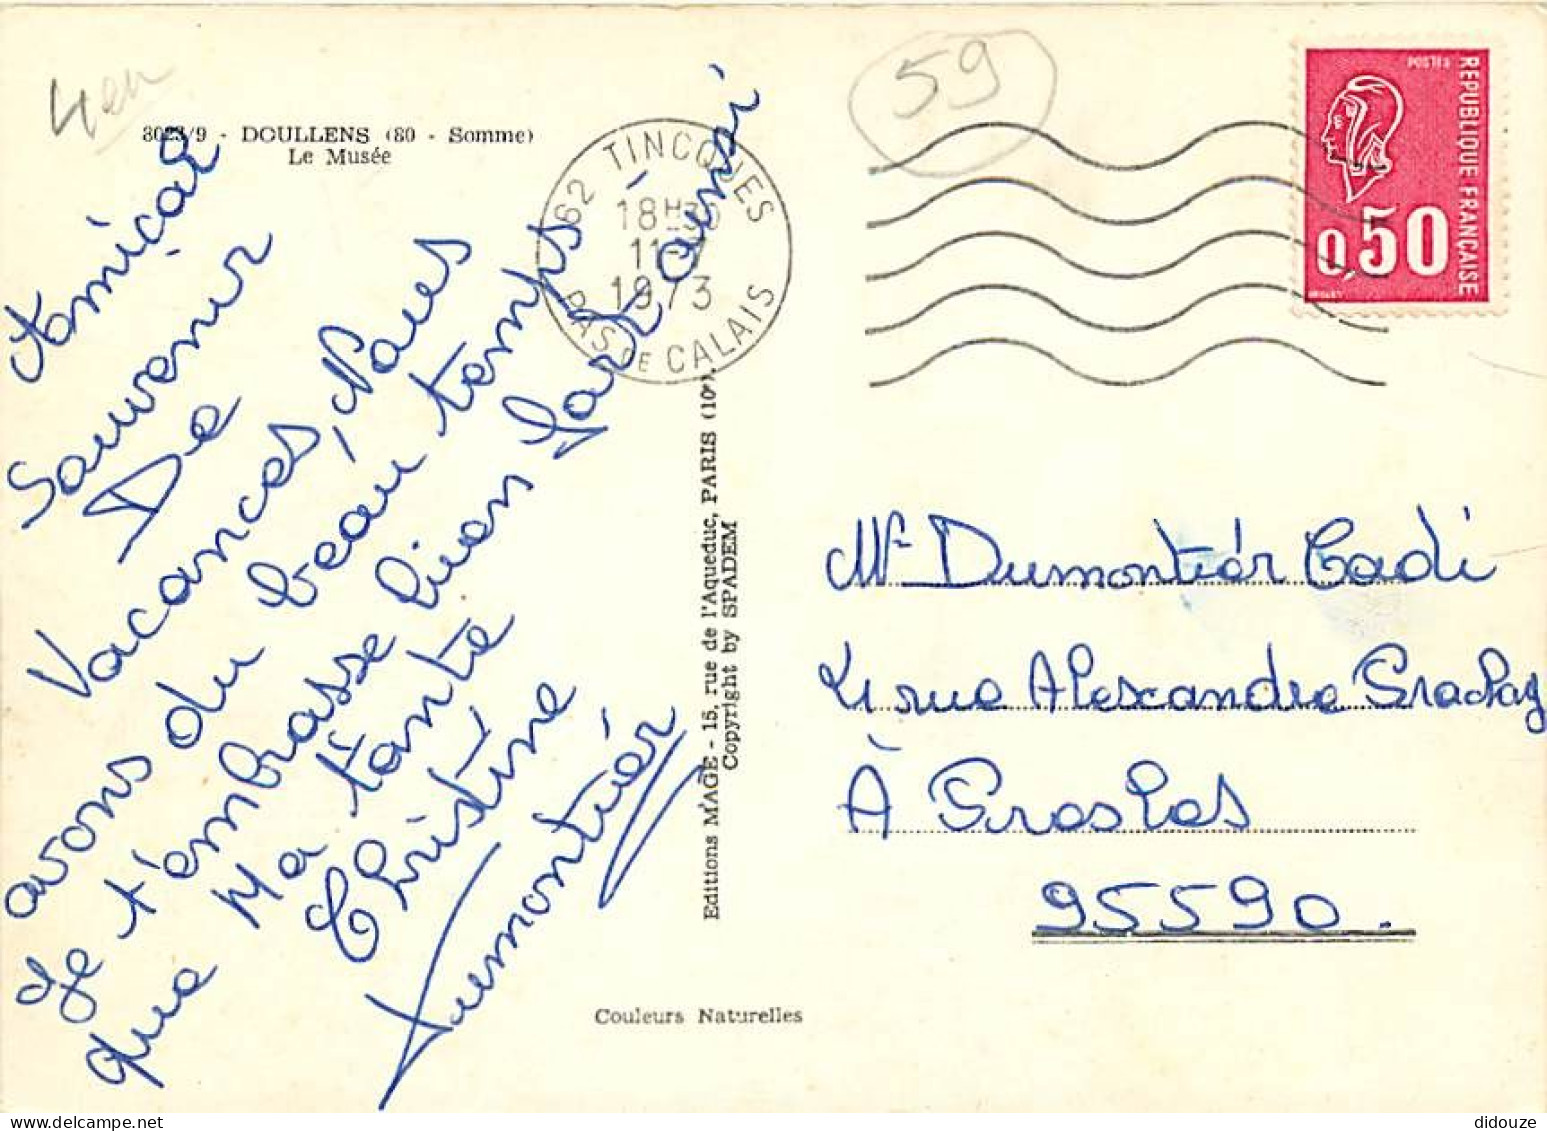 4 en
8023/9 - DOULLENS (80 - Somme)
Le Musée
59
62 TINCQUES
18H30
11-7
1973
PAS DE CALAIS
POSTES
REPUBLIQUE FRANÇAISE
0,50
Amical
Souvenir
De
Vacances, Nous
avons du beau temps
Je t'embrasse bien
que Ma tante
Christine
Dumontiér
Editions MAGE - 15, rue de l'Aqueduc, PARIS (10e).
Copyright by SPADEM
Couleurs Naturelles
Dumontiér Cadi
rue Alexandre
À Groslas
95590.
didouze